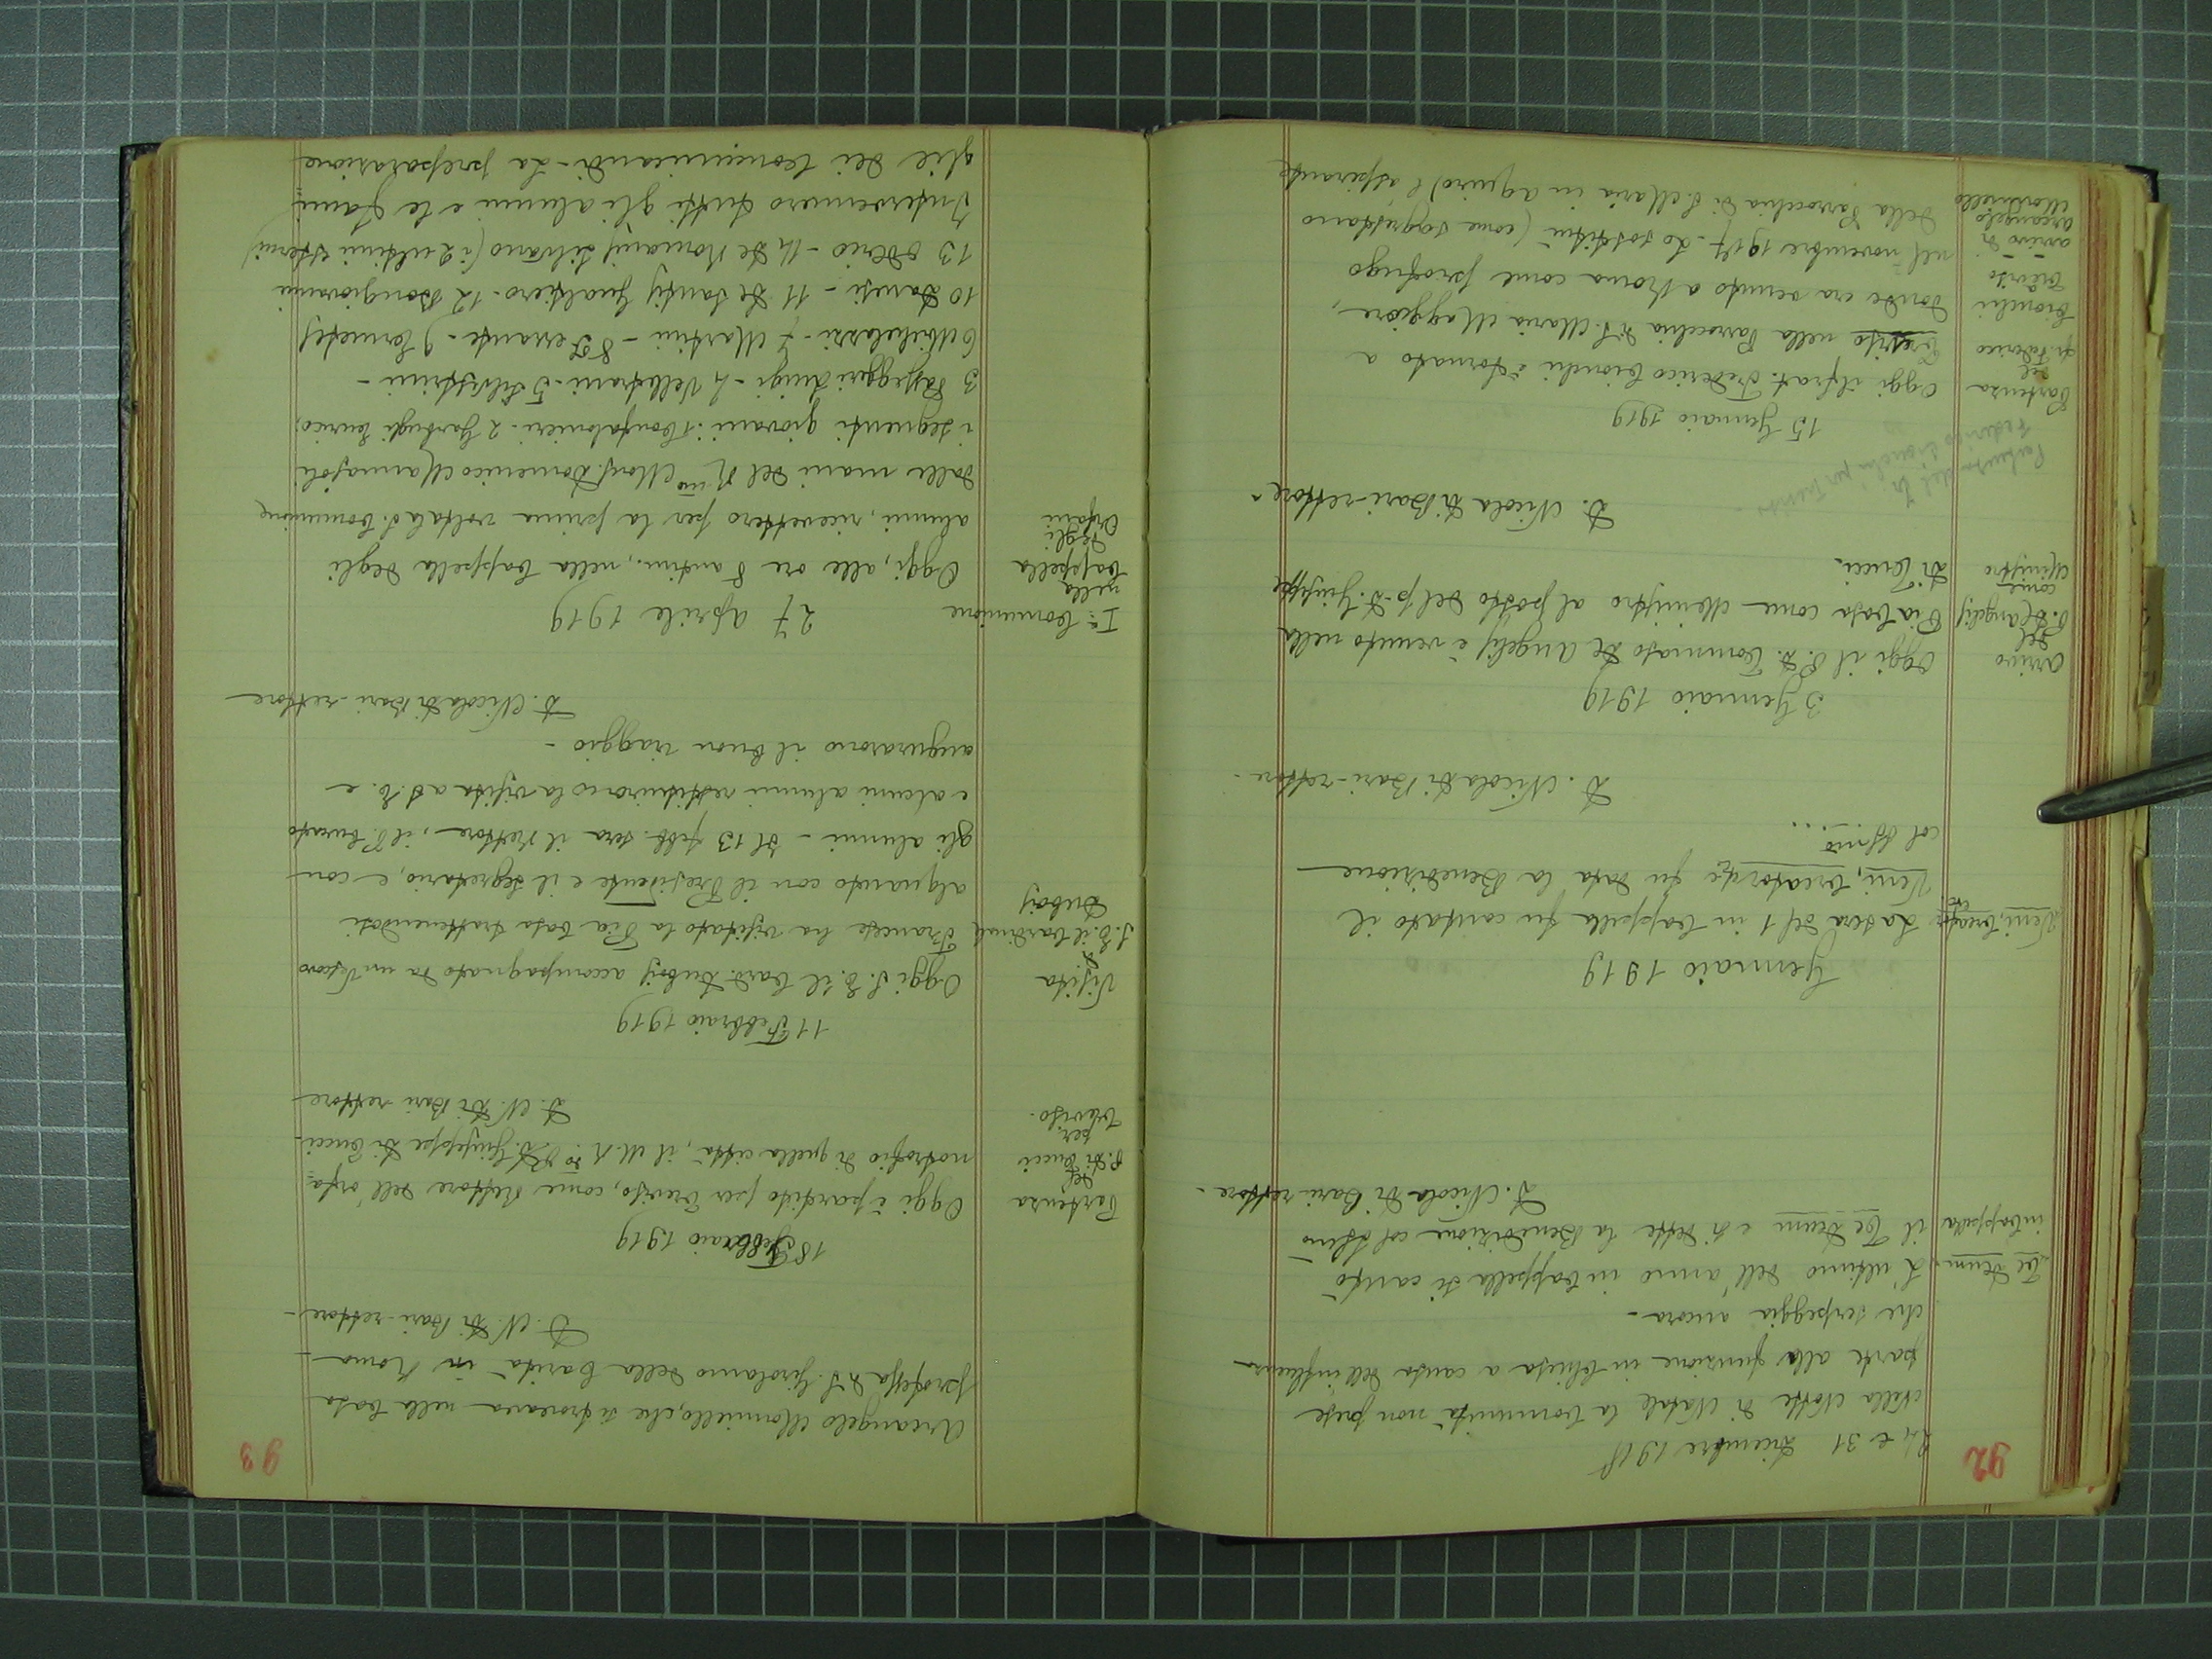 92
24 e 31 Dicembre 1918
Nella Notte di Natale la Comunità non prese
parte alla funzione in Chiesa a causa dell'influenza
che serpeggia ancora -
Te Deum
in Cappella
L'ultimo dell'anno in Cappella si cantò
il Te Deum e si dette la Benedizione col SSmo
D. Nicola Di Bari - rettore -
Gennaio 1919
Veni, Creator
La sera del 1 in Cappella fu cantato il
Veni, Creator e fu data la Benedizione
col SSmo ....
D. Nicola Di Bari - rettore -
3 Gennaio 1919
Arrivo
del
P. De Angelis
come
Ministro
Oggi il P. D. Tommaso De Angelis è venuto nella
Pia Casa come Ministro al posto del p. D. Giuseppe
Di Tucci.
D. Nicola Di Bari - rettore -
Partenza del fr.
Federico Cionchi per Treviso
15 Gennaio 1919
Partenza
del
fr. Federico
Cionchi
Treviso
arrivo di
Arcangelo
Oggi il frat. Federico Cionchi è tornato a
Treviso nella Parrocchia di S. Maria Maggiore,
donde era venuto a Roma come profugo
nel novembre 1917 - Lo sostituì (come sagrestano
della Parrocchia di S. Maria in Aquiro) l'aspirante
93
Arcangelo che si trovava nella Casa
professa di S. Girolamo della Carità in Roma -
D. N. Di Bari - rettore -
18 Febbraio 1919
Partenza
del
P. Di Tucci
per
Treviso.
Oggi è partito per Treviso, come Rettore dell'orfa=
notrofio di quella città, il M. R. P. D. Giuseppe Di Tucci -
D. N. Di Bari rettore
11 Febbraio 1919
Visita
di
S. E. il Cardinal
Dubois
Oggi S. E. il Card. Dubois accompagnato da un Vescovo
Francese ha visitato la Pia Casa trattenendosi
alquanto con il Presidente e il Segretario, e con
gli alunni - Il 13 febb. sera il Rettore, il P. Curato
e alcuni alunni restituirono la visita a S. E. e
augurarono il buon viaggio -
D. Nicola Di Bari - rettore
27 Aprile 1919
Iª Comunione
nella
Cappella
degli
Orfani
Oggi, alle ore 8 antim., nella Cappella degli
alunni, ricevettero per la prima volta la S. Comunione
dalle mani del Rmo Mons. Domenico Mannajoli
i seguenti giovani: 1 Confalonieri - 2 Garbugli Enrico,
3 Passeggeri Luigi - 4 Vellitrani - 5 Silvestrini -
6 - 7 Martini - 8 - 9
10 Danesi - 11 De Santis Gualtiero - 12 Bongiovanni
13 - 14 De Romanis Silvano (i 2 ultimi esterni)
Intervennero tutti gli alunni e le fami=
glie dei Comunicandi - La preparazione